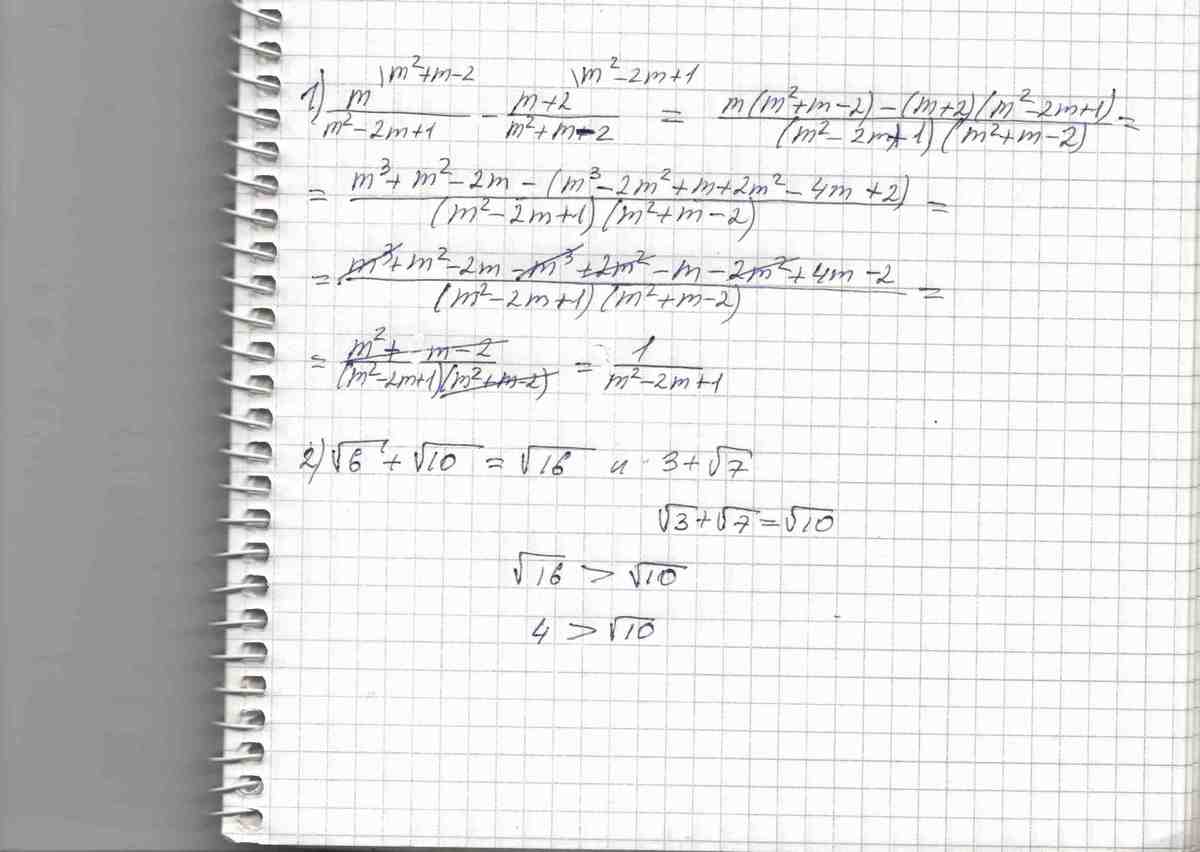 \m²+m-2 \m²-2m+1
1) m/(m²-2m+1) - (m+2)/(m²+m-2) = (m(m²+m-2)-(m+2)(m²-2m+1))/((m²-2m+1)(m²+m-2)) =
= (m³+m²-2m-(m³-2m²+m+2m²-4m+2))/((m²-2m+1)(m²+m-2)) =
= (m³+m²-2m-m³+2m²-m-2m²+4m-2)/((m²-2m+1)(m²+m-2)) =
= (m²+m-2)/((m²-2m+1)(m²+m-2)) = 1/(m²-2m+1)
2) √6+√10=√16 и 3+√7
√3+√7=√10
√16 > √10
4 > √10